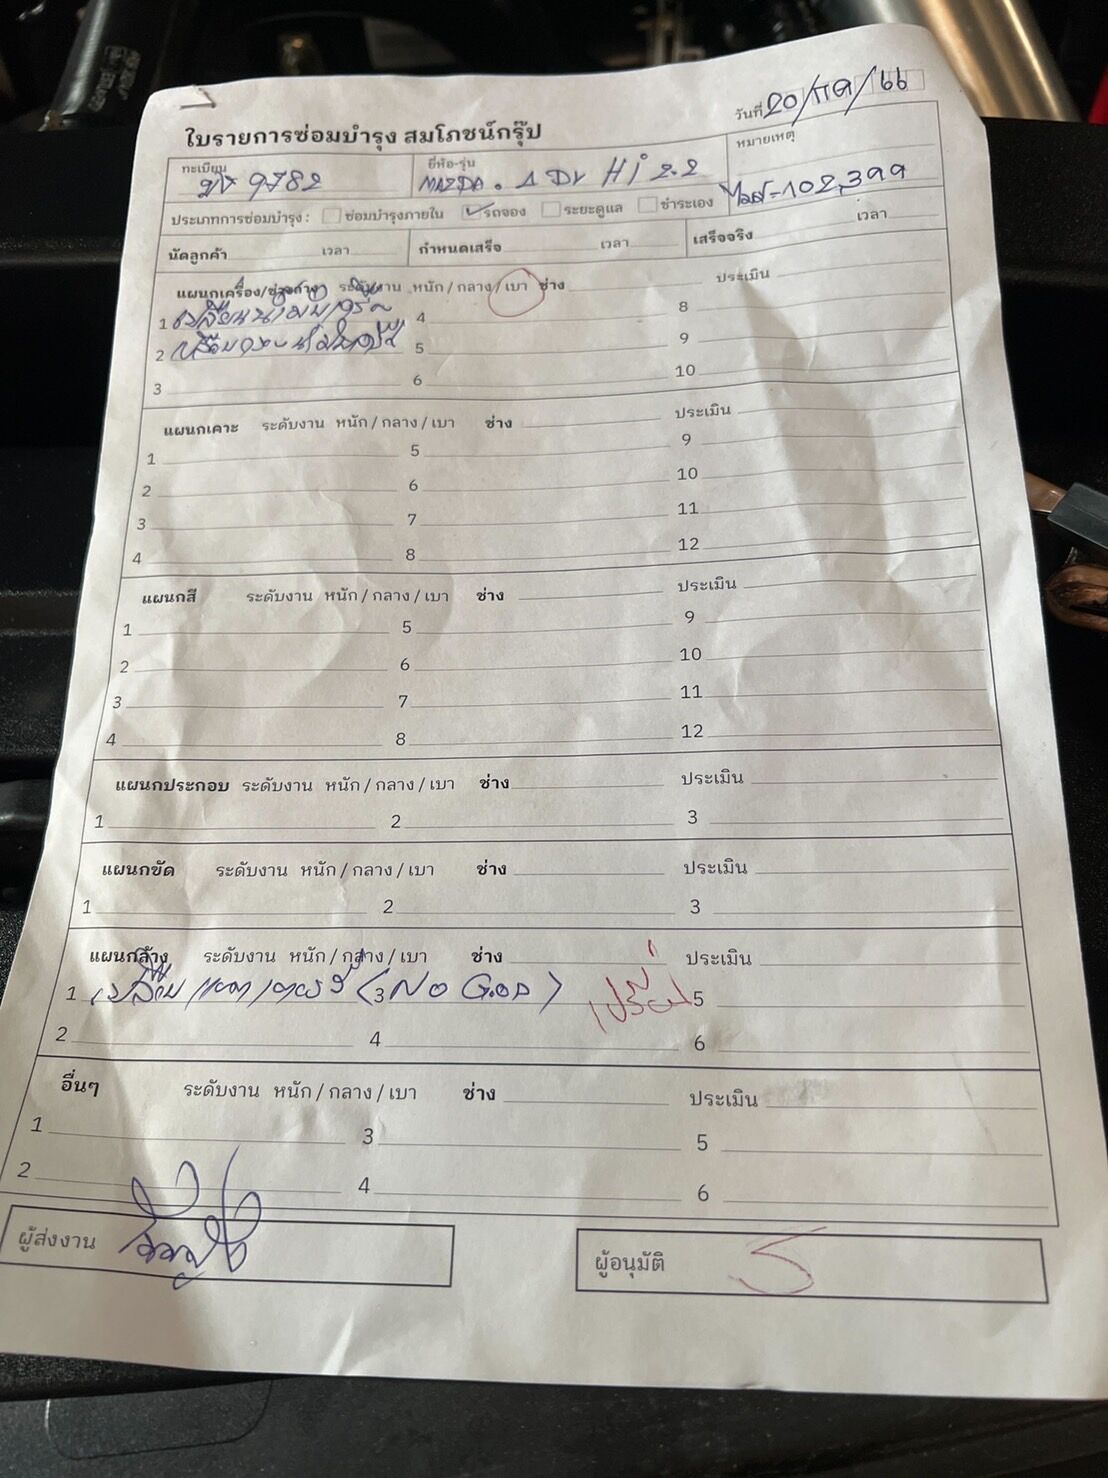 วันที่ 20/กค/66
ใบรายการซ่อมบำรุง สมโภชน์กรุ๊ป
ทะเบียน 9782 ยี่ห้อ-รุ่น MAZDA. 4 Dr Hi 2.2 หมายเหตุ
ไมล์-102,399
ประเภทการซ่อมบำรุง : ซ่อมบำรุงภายใน ✓ รถจอง ระยะดูแล ชำระเอง
นัดลูกค้า เวลา กำหนดเสร็จ เวลา เสร็จจริง เวลา
แผนกเครื่อง/ช่วงล่าง ระดับงาน หนัก / กลาง / เบา ช่าง ประเมิน
1 เปลี่ยน 4 8
2 5 9
3 6 10
แผนกเคาะ ระดับงาน หนัก / กลาง / เบา ช่าง ประเมิน
1 5 9
2 6 10
3 7 11
4 8 12
แผนกสี ระดับงาน หนัก / กลาง / เบา ช่าง ประเมิน
1 5 9
2 6 10
3 7 11
4 8 12
แผนกประกอบ ระดับงาน หนัก / กลาง / เบา ช่าง ประเมิน
1 2 3
แผนกขัด ระดับงาน หนัก / กลาง / เบา ช่าง ประเมิน
1 2 3
แผนกล้าง ระดับงาน หนัก / กลาง / เบา ช่าง ประเมิน
1 เปลี่ยน แบตเตอรี่ 3 (NO GOOD) 5
2 4 6
อื่นๆ ระดับงาน หนัก / กลาง / เบา ช่าง ประเมิน
1 3 5
2 4 6
ผู้ส่งงาน ผู้อนุมัติ